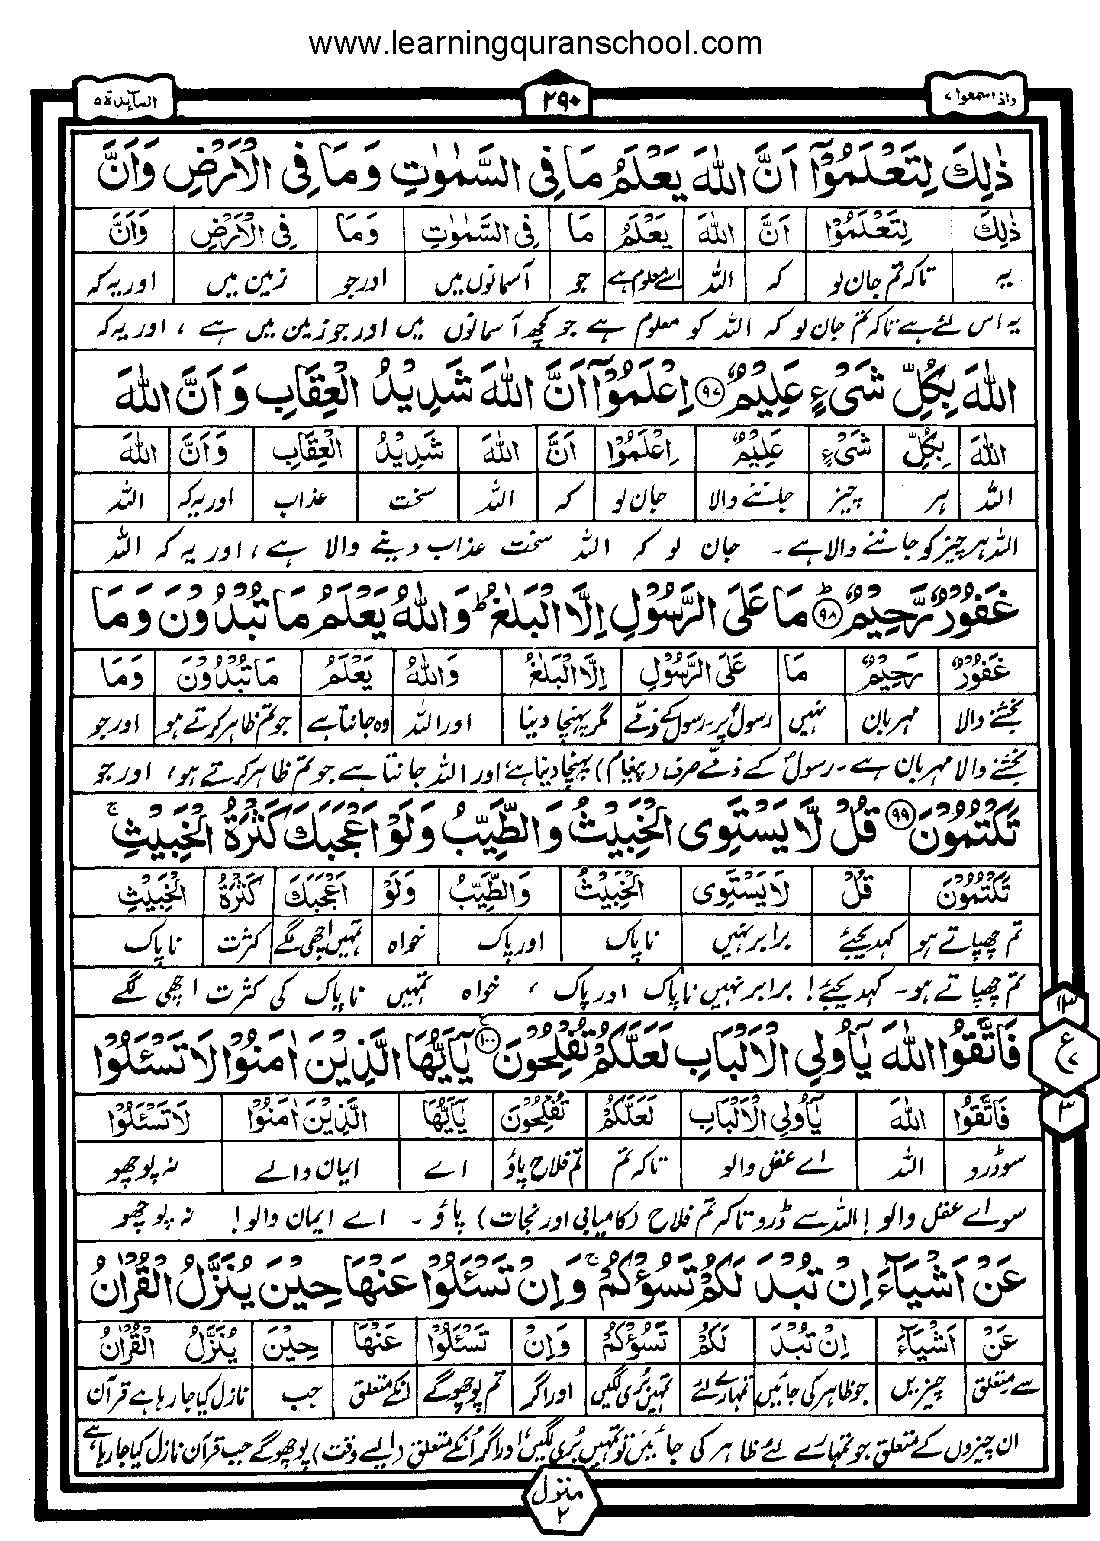 www.learningquranschool.com
واذا سمعوا ۷
۲۹۰
المآئدة ۵
ذٰلِكَ لِتَعْلَمُوْۤا اَنَّ اللّٰهَ يَعْلَمُ مَا فِى السَّمٰوٰتِ وَمَا فِى الْاَرْضِ وَاَنَّ
ذٰلِكَ لِتَعْلَمُوْۤا اَنَّ اللّٰهَ يَعْلَمُ مَا فِى السَّمٰوٰتِ وَمَا فِى الْاَرْضِ وَاَنَّ
یہ تاکہ تم جان لو کہ اللہ اسے معلوم ہے جو آسمانوں میں اور جو زمین میں اور یہ کہ
یہ اس لئے ہے تاکہ تم جان لو کہ اللہ کو معلوم ہے جو کچھ آسمانوں میں اور جو زمین میں ہے ، اور یہ کہ
اللّٰهَ بِكُلِّ شَىْءٍ عَلِيْمٌ ۹۷ اِعْلَمُوْۤا اَنَّ اللّٰهَ شَدِيْدُ الْعِقَابِ وَاَنَّ اللّٰهَ
اللّٰهَ بِكُلِّ شَىْءٍ عَلِيْمٌ اِعْلَمُوْۤا اَنَّ اللّٰهَ شَدِيْدُ الْعِقَابِ وَاَنَّ اللّٰهَ
اللہ ہر چیز جاننے والا جان لو کہ اللہ سخت عذاب اور یہ کہ اللہ
اللہ ہر چیز کو جاننے والا ہے۔ جان لو کہ اللہ سخت عذاب دینے والا ہے ، اور یہ کہ اللہ
غَفُوْرٌ رَّحِيْمٌ ۹۸ مَا عَلَى الرَّسُوْلِ اِلَّا الْبَلٰغُ ؕ وَاللّٰهُ يَعْلَمُ مَا تُبْدُوْنَ وَمَا
غَفُوْرٌ رَّحِيْمٌ مَا عَلَى الرَّسُوْلِ اِلَّا الْبَلٰغُ وَاللّٰهُ يَعْلَمُ مَا تُبْدُوْنَ وَمَا
بخشنے والا مہربان نہیں رسولؐ پر۔رسول کے ذمے مگر پہنچا دینا اور اللہ وہ جانتا ہے جو تم ظاہر کرتے ہو اور جو
بخشنے والا مہربان ہے ۔ رسولؐ کے ذمے صرف (پیغام) پہنچا دینا ہے اور اللہ جانتا ہے جو تم ظاہر کرتے ہو ، اور جو
تَكْتُمُوْنَ ۹۹ قُلْ لَّا يَسْتَوِى الْخَبِيْثُ وَالطَّيِّبُ وَلَوْ اَعْجَبَكَ كَثْرَةُ الْخَبِيْثِ ۚ
تَكْتُمُوْنَ قُلْ لَّا يَسْتَوِى الْخَبِيْثُ وَالطَّيِّبُ وَلَوْ اَعْجَبَكَ كَثْرَةُ الْخَبِيْثِ
تم چھپاتے ہو کہدیجئے برابر نہیں ناپاک اور پاک خواہ تمہیں اچھی لگے کثرت ناپاک
تم چھپاتے ہو۔ کہدیجئے! برابر نہیں ناپاک اور پاک ، خواہ تمہیں ناپاک کی کثرت اچھی لگے
۱۳
ع
فَاتَّقُوا اللّٰهَ يٰۤاُولِى الْاَلْبَابِ لَعَلَّكُمْ تُفْلِحُوْنَ ۱۰۰ يٰۤاَيُّهَا الَّذِيْنَ اٰمَنُوْا لَا تَسْئَلُوْا
۳
فَاتَّقُوا اللّٰهَ يٰۤاُولِى الْاَلْبَابِ لَعَلَّكُمْ تُفْلِحُوْنَ يٰۤاَيُّهَا الَّذِيْنَ اٰمَنُوْا لَا تَسْئَلُوْا
سو ڈرو اللہ اے عقل والو تاکہ تم تم فلاح پاؤ اے ایمان والے نہ پوچھو
سو اے عقل والو ! اللہ سے ڈرو تاکہ تم فلاح (کامیابی اور نجات) پاؤ ۔ اے ایمان والو! نہ پوچھو
عَنْ اَشْيَآءَ اِنْ تُبْدَ لَكُمْ تَسُؤْكُمْ ۚ وَاِنْ تَسْئَلُوْا عَنْهَا حِيْنَ يُنَزَّلُ الْقُرْاٰنُ
عَنْ اَشْيَآءَ اِنْ تُبْدَ لَكُمْ تَسُؤْكُمْ وَاِنْ تَسْئَلُوْا عَنْهَا حِيْنَ يُنَزَّلُ الْقُرْاٰنُ
سے متعلق چیزیں جو ظاہر کی جائیں تمہارے لئے تمہیں بُری لگیں اور اگر تم پوچھوگے انکے متعلق جب نازل کیا جا رہا ہے قرآن
ان چیزوں کے متعلق جو تمہارے لئے ظاہر کی جائیں تو تمہیں بُری لگیں، اور اگر اُنکے متعلق (ایسے وقت) پوچھوگے جب قرآن نازل کیا جا رہا ہے
منزل
۲